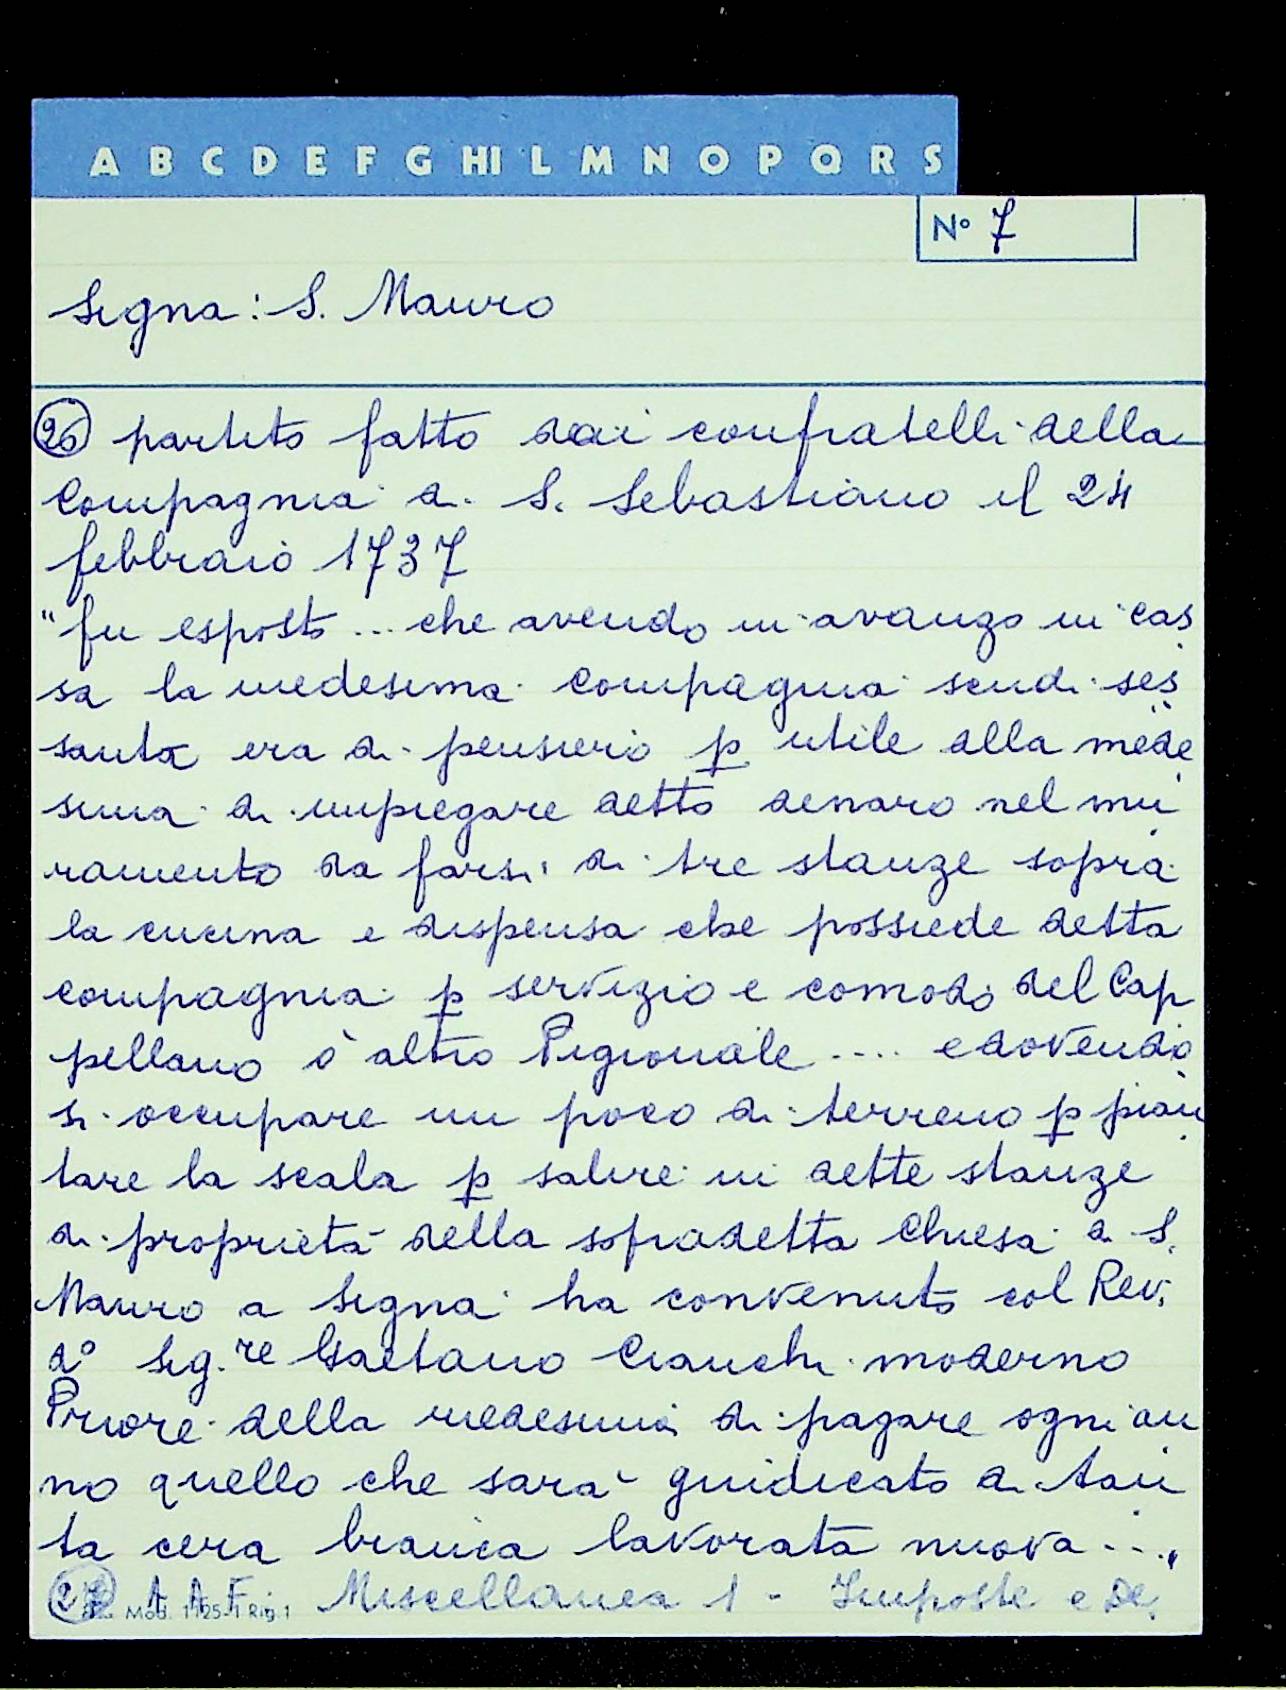 A B C D E F G HI L M N O P Q R S
N° 7
Signa: S. Mauro
26 partito fatto dai confratelli della
Compagnia di S. Sebastiano il 24
febbraio 1737
"fu esposto ... che avendo in avanzo in cas
sa la medesima compagnia scudi ses
santa era di pensiero p utile alla mede
sima di impiegare detto denaro nel mu
ramento da farsi di tre stanze sopra
la cucina e dispensa che possiede detta
compagnia p servizio e comodo del Cap
pellano ò altro Pigionale .... e dovendo
si occupare un poco di terreno p pian
tare la scala p salire in dette stanze
di proprietà della sopradetta Chiesa di S.
Mauro a Signa ha convenuto col Rev.
do Sig.re Gaetano Cianchi moderno
Priore della medesima di pagare ogni an
no quello che sarà guidicato di tan
ta cera bianca lavorata nuova ..."
27 A A F. Miscellanea 1 - Imposte e De.
Mod. 1125-1 Rig. 1